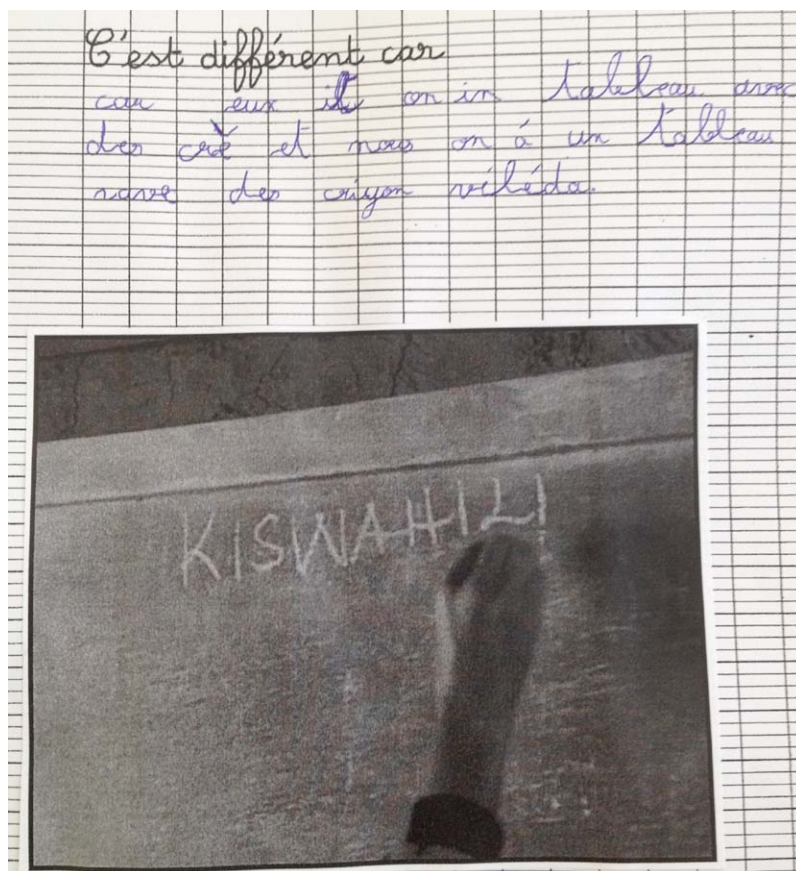 C'est différent car
car eux il on in tableau avec
des crè et nous on á un tableau
navve des criyon véléda.
KISWAHILI